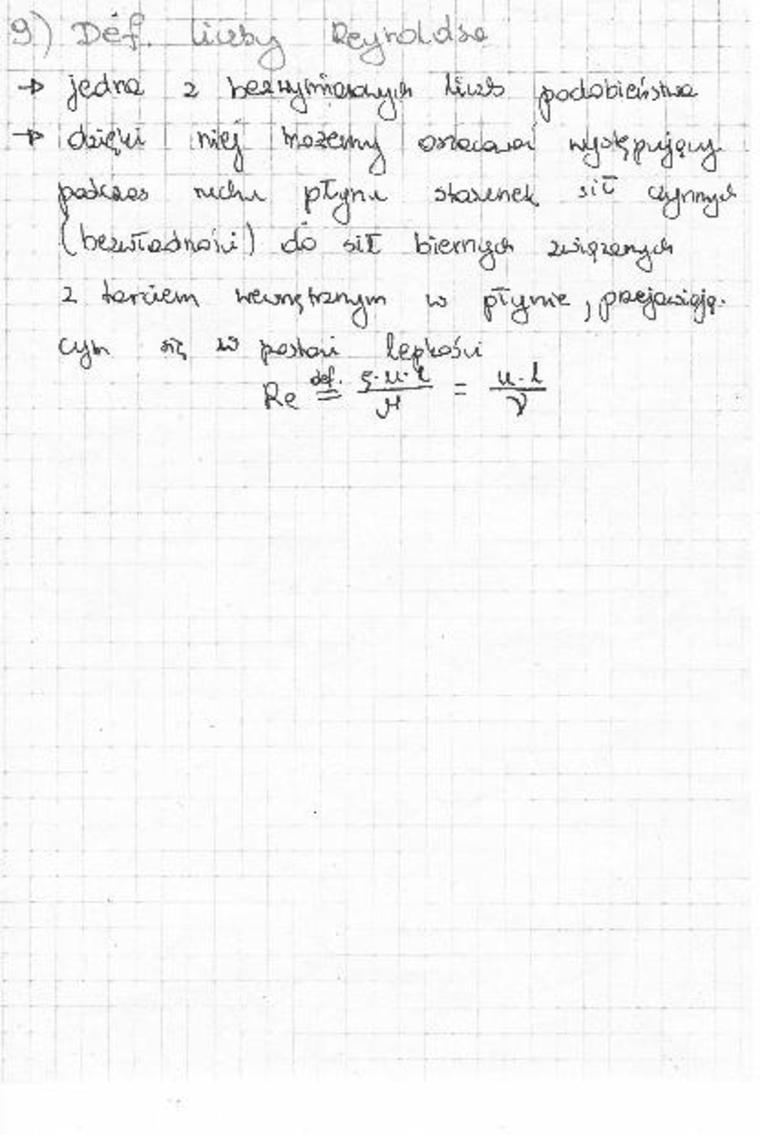 9) Def. liczby Reynoldsa
→ jedna z bezwymiarowych liczb podobieństwa
→ dzięki niej możemy oszacować występujący
podczas ruchu płynu stosunek sił czynnych
(bezwładności) do sił biernych związanych
z tarciem wewnętrznym w płynie, przejawiają-
cym się w postaci lepkości
Re def.= ρ·u·l/μ = u·l/ν